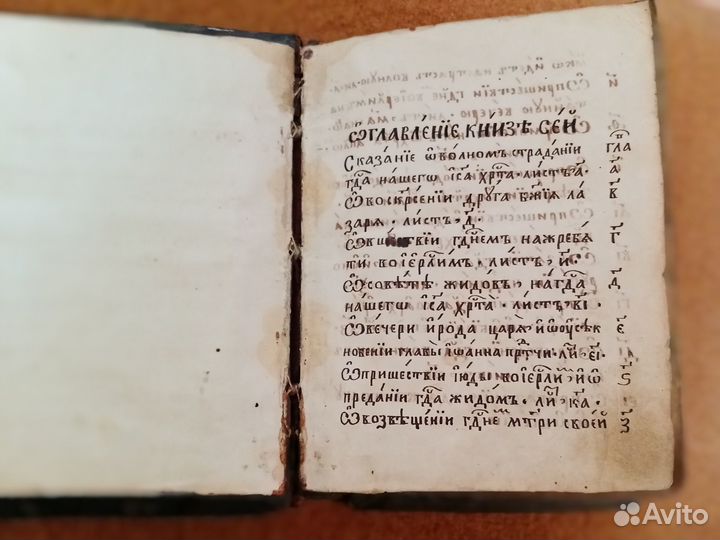 Ѡ҆главле́нїе кни́зѣ се́й
Сказа́нїе ѡ҆ во́лном страда́нїи гла҃
гдⷭ҇а на́шегѡ і҆са хрⷭ҇та̀ · ли́стъ а҃· а҃
Ѡ҆ воскрⷭ҇сенїи дрꙋ́га бж҃їѧ ла в҃
зарѧ · ли́стъ · д҃·
гдⷭ҇нем на жребѧ г҃
ти во і҆ерⷭ҇ли́мъ · ли́стъ · и҃·
Ѡ҆ совѣ́тѣ жидо́въ на гдⷭ҇а д҃
на́шегѡ і҆са хрⷭ҇та̀ · ли́стъ в҃і ·
Ѡ҆ ве́чери и҆́рода царѧ̀ и҆ ѡ҆ оу҆сѣк є҃
новенїи главы̀ і҆ѡа́нна прⷣтчи · лиⷭ҇ · є҃і ·
Ѡ҆ прише́ствїи і҆ю́ды во і҆ерⷭ҇ли́м и҆ ѡ҆ ѕ҃
преда́нїи гдⷭ҇а жидо́м · лиⷭ҇ · к҃а ·
Ѡ҆ возвѣще́нїи гдⷭ҇не мт҃ри свое́й з҃
Avito